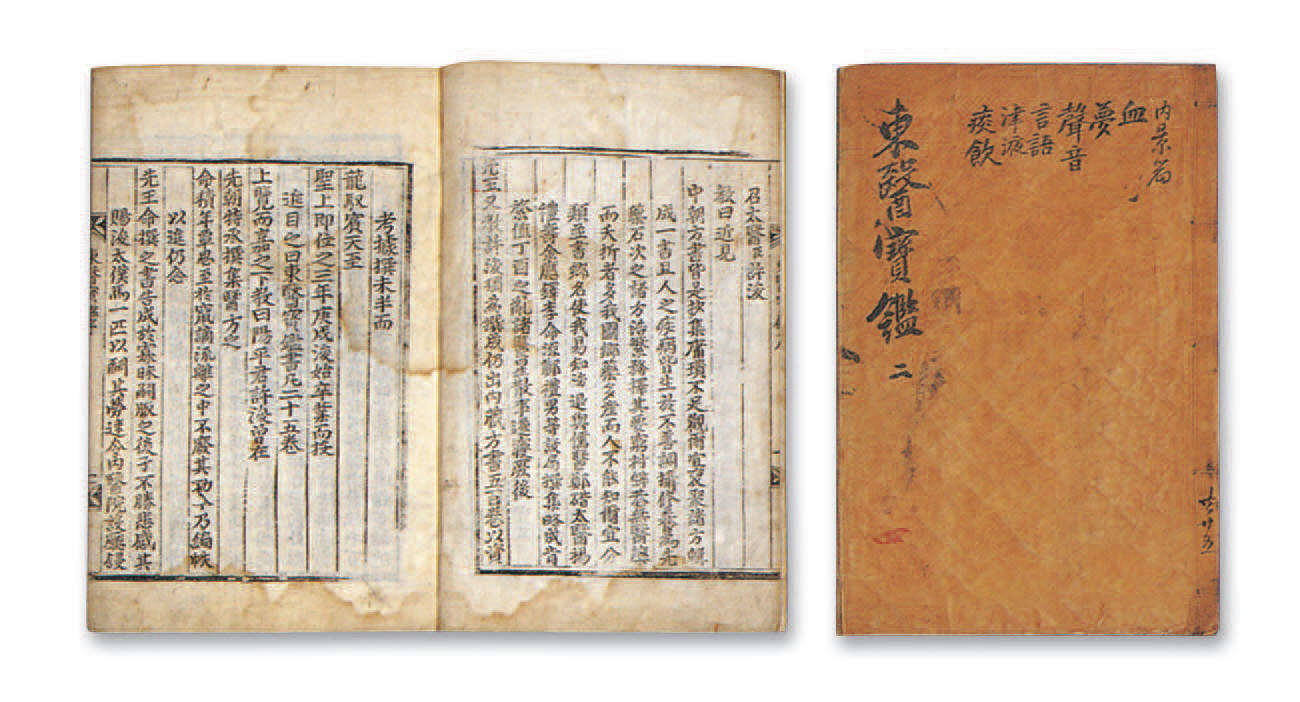 召太醫臣許浚
敎曰近見
中朝方書皆是抄集庸瑣不足觀爾宜裒聚諸方輯
成一書且人之疾病皆生於不善調攝修養爲先
藥石次之諸方浩繁務擇其要窮村僻巷無醫藥
而夭折者多我國鄕藥多産而人不能知爾宜分
類並書鄕名使民易知浚退與儒醫鄭碏太醫楊
禮壽金應鐸李命源鄭禮男等設局撰集略成肯
綮値丁酉之亂諸醫星散事遂寢厥後
先王又敎許浚獨爲撰成仍出內藏方書五百卷以資
考據撰未半而
龍馭賓天至
聖上即位之三年庚戌浚始卒業而投
進目之曰東醫寶鑑書凡二十五卷
上覽而嘉之下敎曰陽平君許浚曾在
先朝特承撰集醫方之
命積年覃思至於竄謫流離之中不廢其功今乃編帙
以進仍念
先王命撰之書告成於寡昧嗣服之後予不勝悲感其
賜浚太僕馬一匹以酬其勞速令內醫院設廳鋟
共卄五
內景篇
血
夢
聲音
言語
津液
痰飮
東醫寶鑑 二